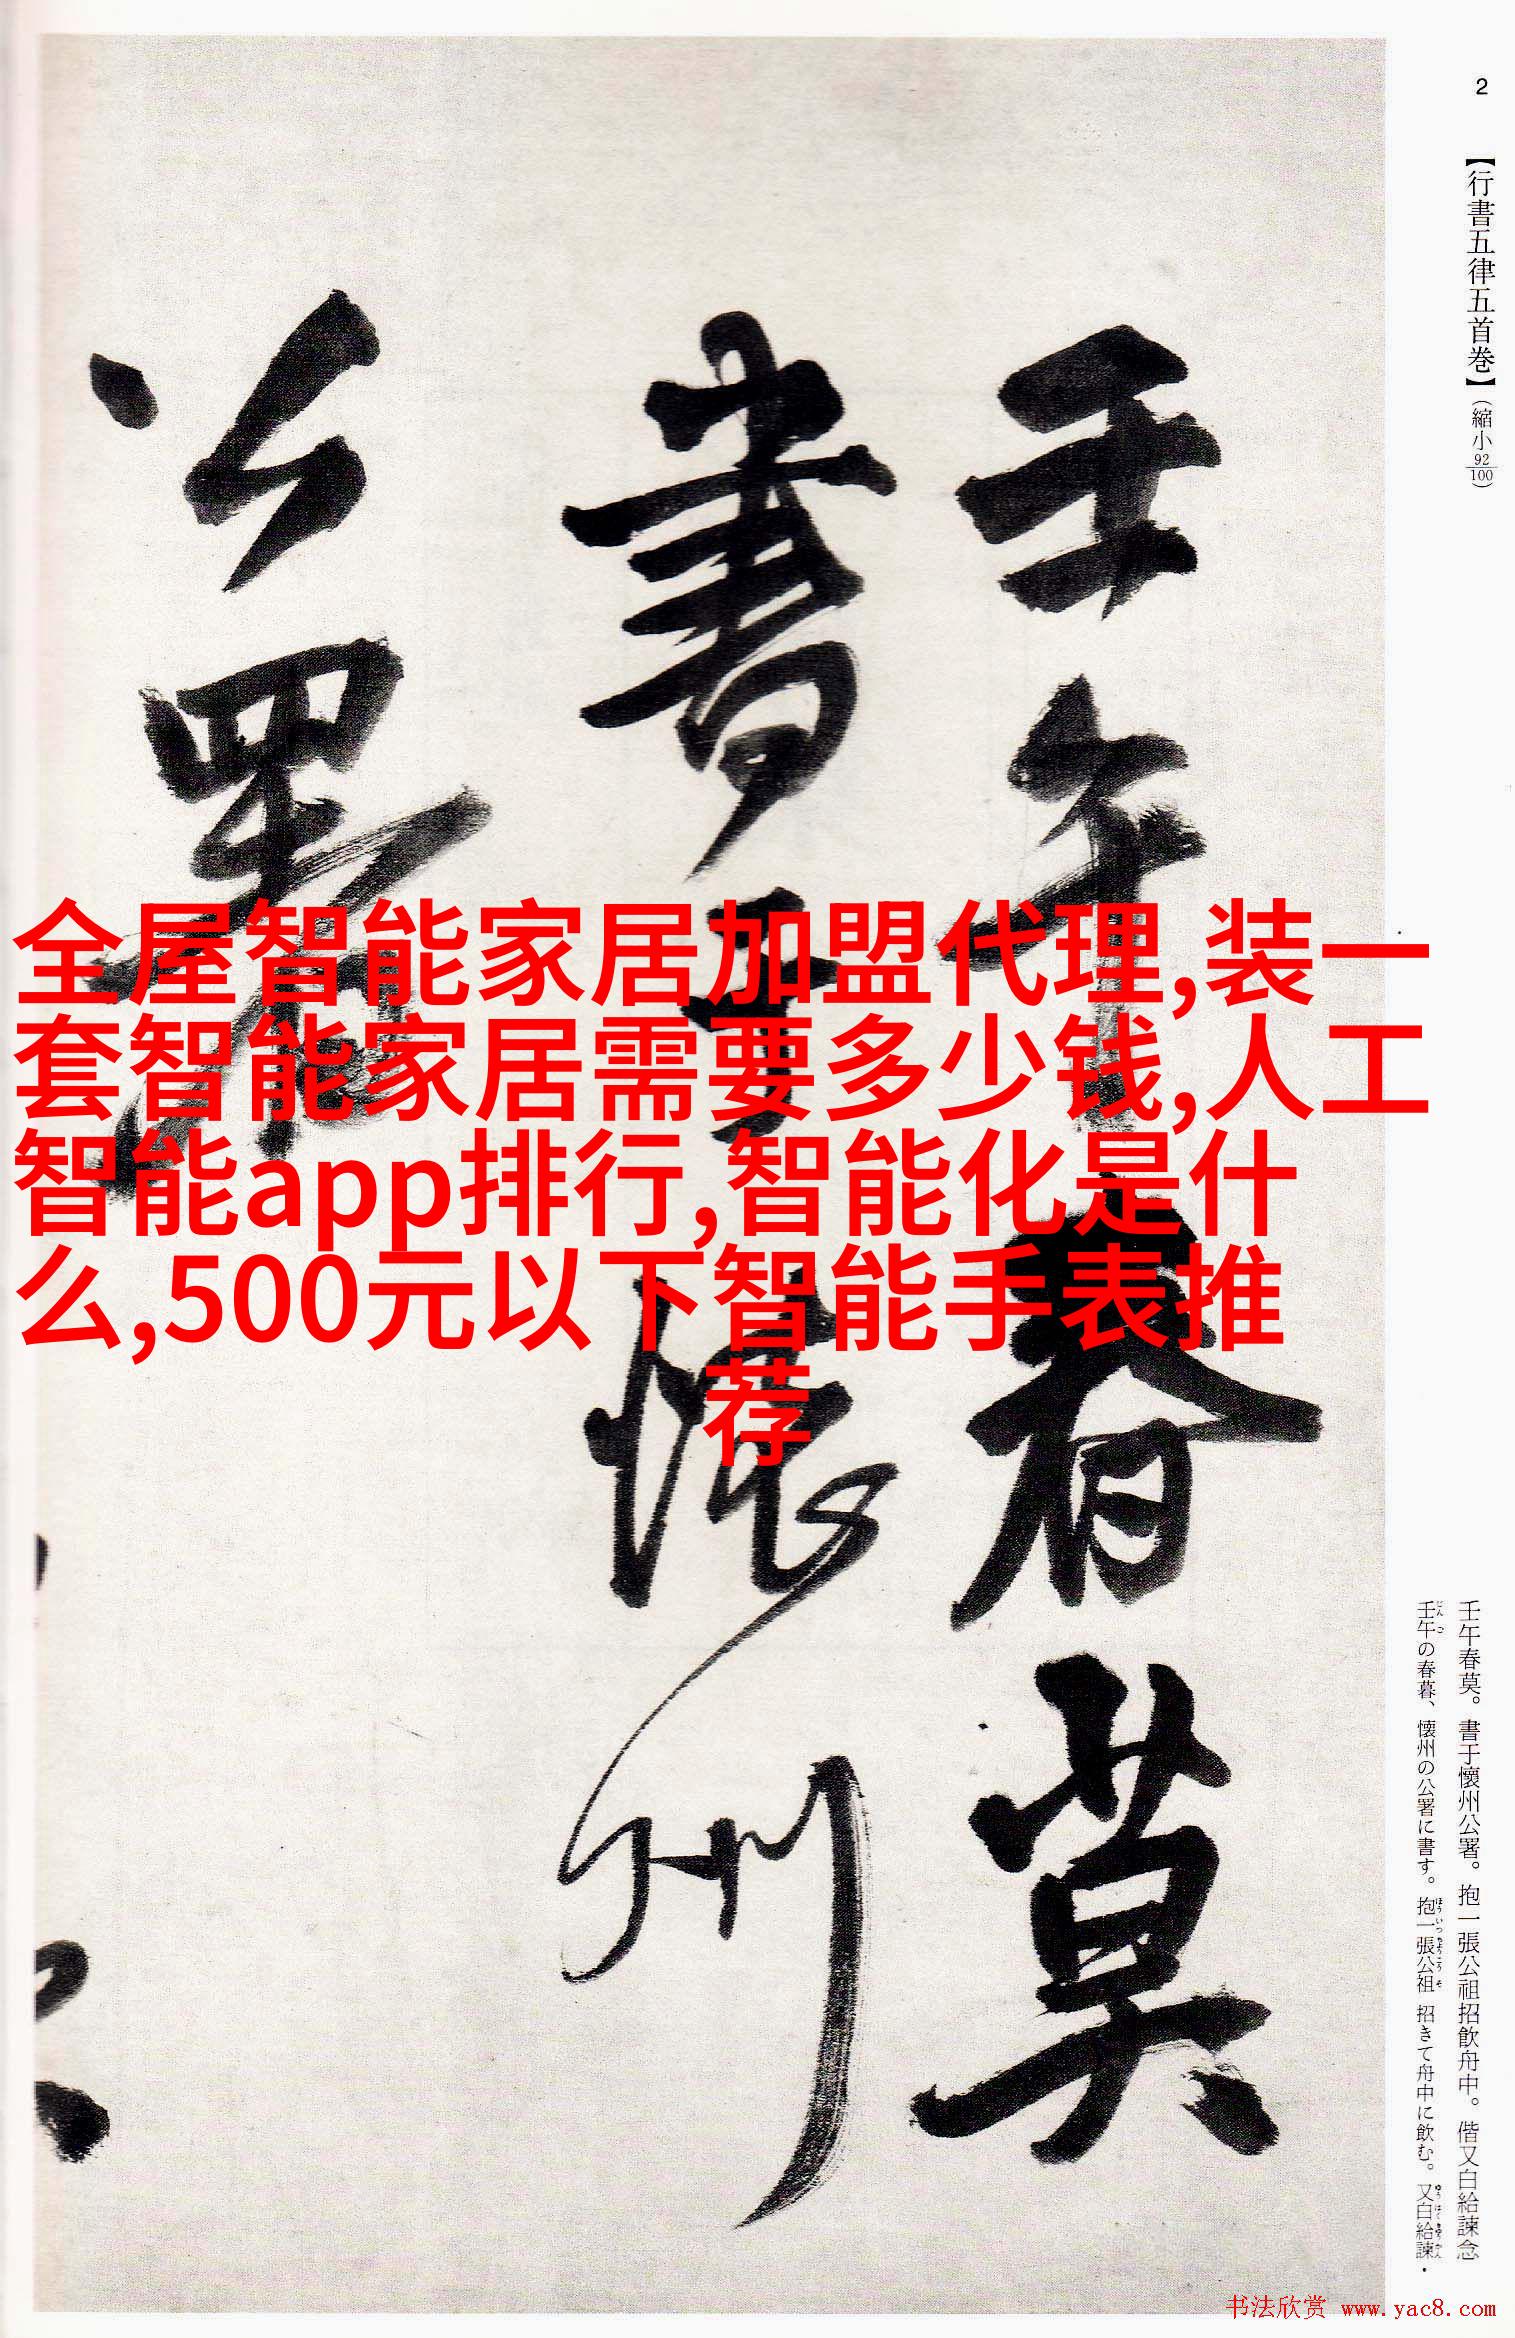 2
【行書五律五首巻】(縮小92/100)
壬午春莫
書于懷州
公署
全屋智能家居加盟代理,装一
套智能家居需要多少钱,人工
智能app排行,智能化是什
么,500元以下智能手表推
荐
壬午春莫。書于懷州公署。抱一張公祖招飲舟中。偕又白給諫念
壬午の春暮、懷州の公署に書す。抱一張公祖 招きて舟中に飲む。又白給諫・
书法欣赏 www.yac8.com